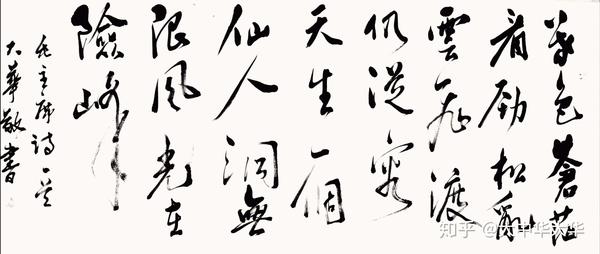 暮色蒼茫
看勁松亂
雲飛渡
仍從容
天生一個
仙人洞無
限風光在
險峰
毛主席詩一首
大華敬書
知乎 @大中华大华